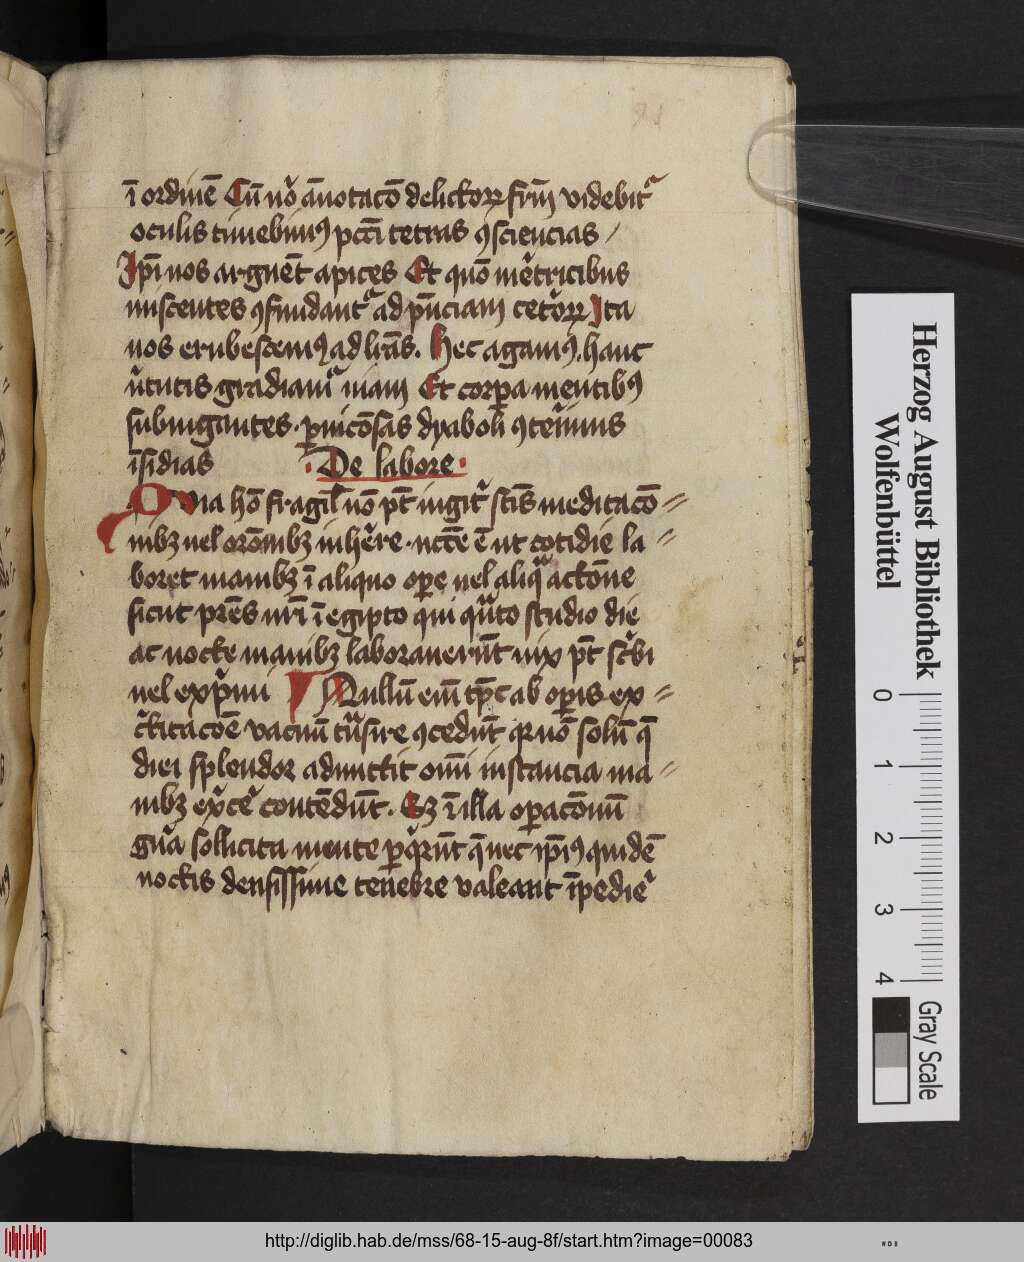 ī ordinē Cū nō ānotacō delictoꝝ fr̄m videbit᷑
oculis timebimꝰ pccī tetras ꝯsciencias /
Ip̄i nos arguēt apices Et quō met᷑ricibus
miscentes ꝯfundant᷑ ad pn̄ciam cet᷑oꝝ Ita
nos erubescemꝰ ad lrās. Hec agamꝰ. hanc
v᷑tutis gradiam᷑ viam Et corꝑa mentibꝰ
subiugantes. ꝑnicōsas dyaboli ꝯtem᷑imus
īsidias · De labore ·
Quia hō fragil̄ nō pt̄ iugit᷑ sctīs meditacō =
nibꝫ uel orōnibꝫ inher᷑e. nccē ē ut cotidie la =
boret manibꝫ ī aliquo oꝑe uel aliqᵃ actōne
sicut prēs nrī ī egipto qui qᵃnto studio die
ac nocte manibꝫ laborauerūt uix pt̄ sc᷑bi
uel exp᷑mi Nullū eiū tp̄c ab oꝑis ex =
c᷑citacōe vacuū tᵃnsire ꝯcedūt qr nō solū q̄
diei splendor admittit om̄i instancia ma =
nibꝫ ex᷑cer᷑e contēdūt. Sꝫ ī illa oꝑacōnū
gn̄a sollicita mente ꝑq᷑rūt q̄ nec ip̄iꝰ quidē
noctis densissime tenebre valeant īpedir᷑e
Herzog August Bibliothek
Wolfenbüttel
0 1 2 3 4
Gray Scale
http://diglib.hab.de/mss/68-15-aug-8f/start.htm?image=00083